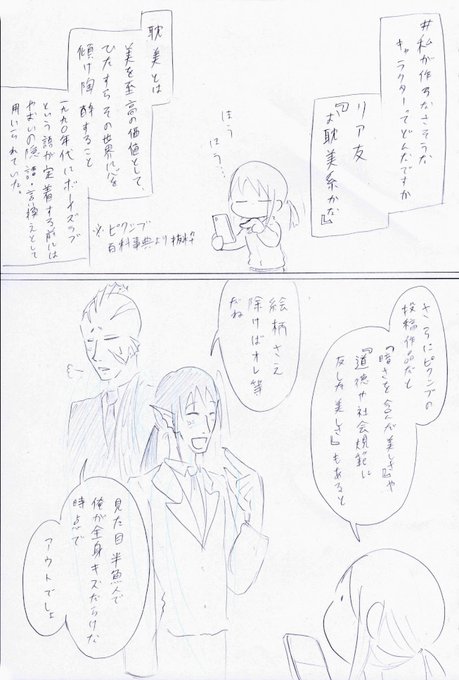 #私が作らなさそうな
キャラクターってどんなですか
リア友
『お耽美系かな』
はう
はう…
耽美とは
美を至高の価値として、
ひたすらその世界に心を
傾け陶酔すること
一九九〇年代にボーイズラブ
という語が定着する前には
やおいの隠語・言換えとして
用いられていた。
※ピクシブ
百科事典より抜粋
さらにピクシブの
投稿作品だと
『暗さを含んだ美しさ』や
『道徳や社会規範に
反した美しさ』もあると
絵柄さえ
除けばオレ等
だね
見た目半魚人で
俺が全身キズだらけな
時点で
アウトでしょ